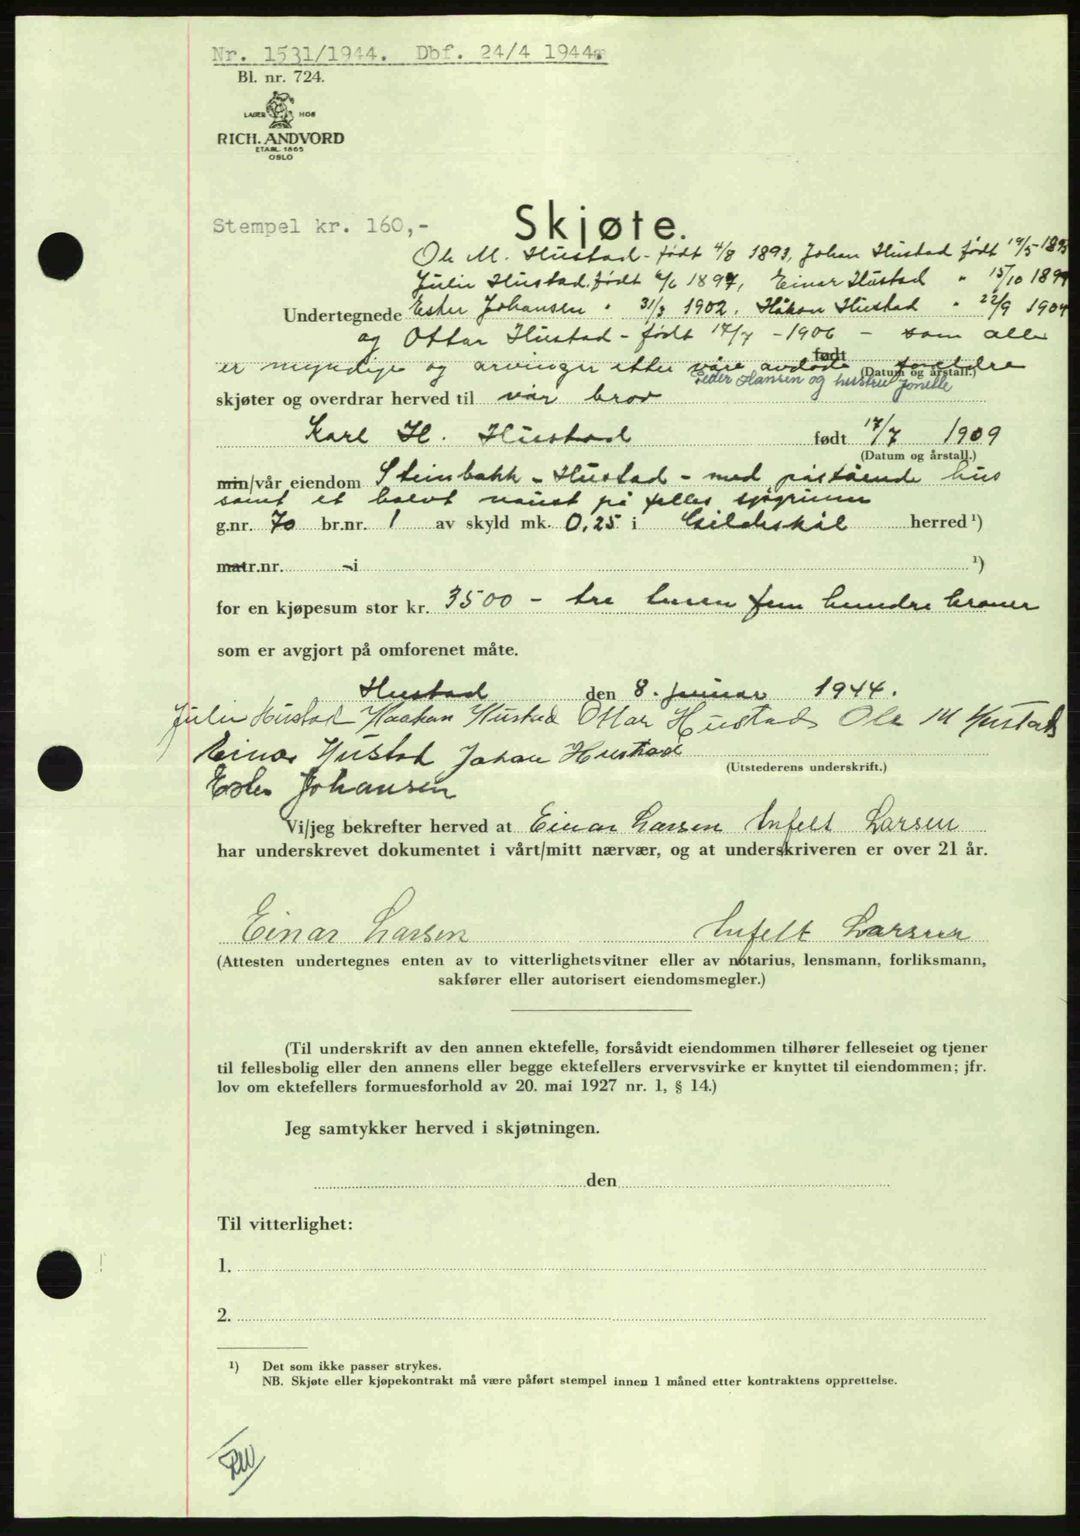 Nr. 1531/1944. Dbf. 24/4 1944.
Bl. nr. 724.
LAGER HOS
RICH. ANDVORD
ETABL. 1865
OSLO
Stempel kr. 160,-
Skjøte.
Ole M. Hustad - født 4/8 1893, Johan Hustad født 19/5-1895
Julie Hustad, født 6/6 1897, Einar Hustad " 15/10 1899
Undertegnede Ester Johansen " 31/3 1902. Håkon Hustad " 22/9 1904
og Ottar Hustad - født 17/7 - 1906 - som alle
født
er myndige og arvinger etter våre avdøde foreldre
(Datum og årstall.)
Peder Hansen og hustru Jonelle
skjøter og overdrar herved til vår bror
Karl H. Hustad født 17/7 1909
(Datum og årstall.)
min/vår eiendom Steinbakk - Hustad - med påstående hus
samt et halvt naust på felles sjøgrunn
g.nr. 70 br.nr. 1 av skyld mk. 0,25 i Gildeskål herred ¹)
matr.nr. - i ¹)
for en kjøpesum stor kr. 3500 - tre tusen fem hundre kroner
som er avgjort på omforenet måte.
Hustad den 8. januar 1944.
Julie Hustad Haakon Hustad Ottar Hustad Ole M Hustad
Einar Hustad Johan Hustad
(Utstederens underskrift.)
Ester Johansen
Vi/jeg bekrefter herved at Einar Larsen Infelt Larsen
har underskrevet dokumentet i vårt/mitt nærvær, og at underskriveren er over 21 år.
Einar Larsen Infelt Larsen
(Attesten undertegnes enten av to vitterlighetsvitner eller av notarius, lensmann, forliksmann,
sakfører eller autorisert eiendomsmegler.)
(Til underskrift av den annen ektefelle, forsåvidt eiendommen tilhører felleseiet og tjener
til fellesbolig eller den annens eller begge ektefellers ervervsvirke er knyttet til eiendommen; jfr.
lov om ektefellers formuesforhold av 20. mai 1927 nr. 1, § 14.)
Jeg samtykker herved i skjøtningen.
den
Til vitterlighet:
1.
2.
¹) Det som ikke passer strykes.
NB. Skjøte eller kjøpekontrakt må være påført stempel innen 1 måned etter kontraktens opprettelse.